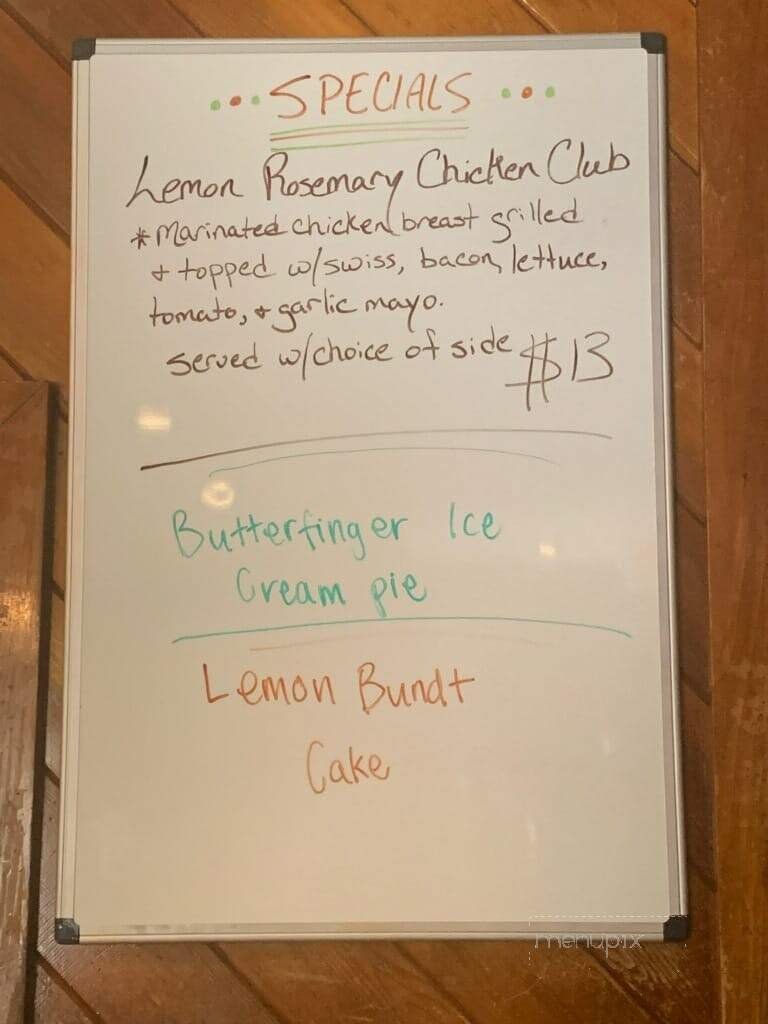 SPECIALS
Lemon Rosemary Chicken Club
*Marinated chicken breast grilled
+ topped w/swiss, bacon, lettuce,
tomato, + garlic mayo.
served w/choice of side $13
Butterfinger Ice
Cream pie
Lemon Bundt
Cake
menupix